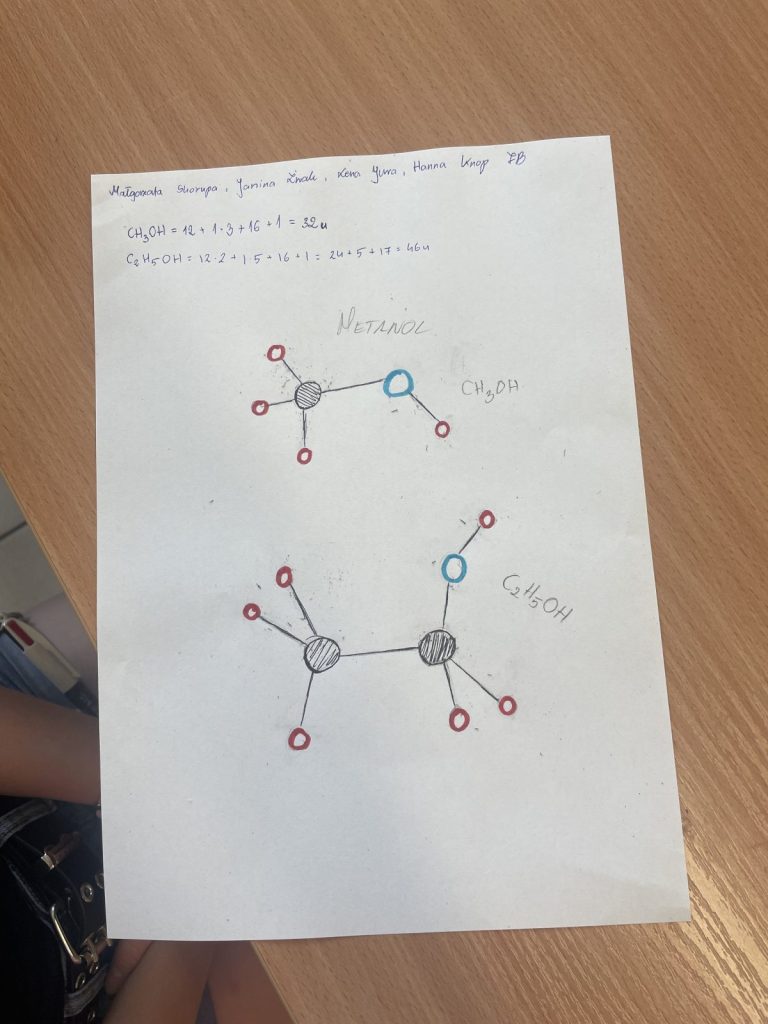 Małgorzata Skorupa, Janina Żnak, Lena Jura, Hanna Knop
CH₃OH = 12 + 1·3 + 16 + 1 = 32u
C₂H₅OH = 12·2 + 1·5 + 16 + 1 = 24 + 5 + 17 = 46u
METANOL
CH₃OH
C₂H₅OH